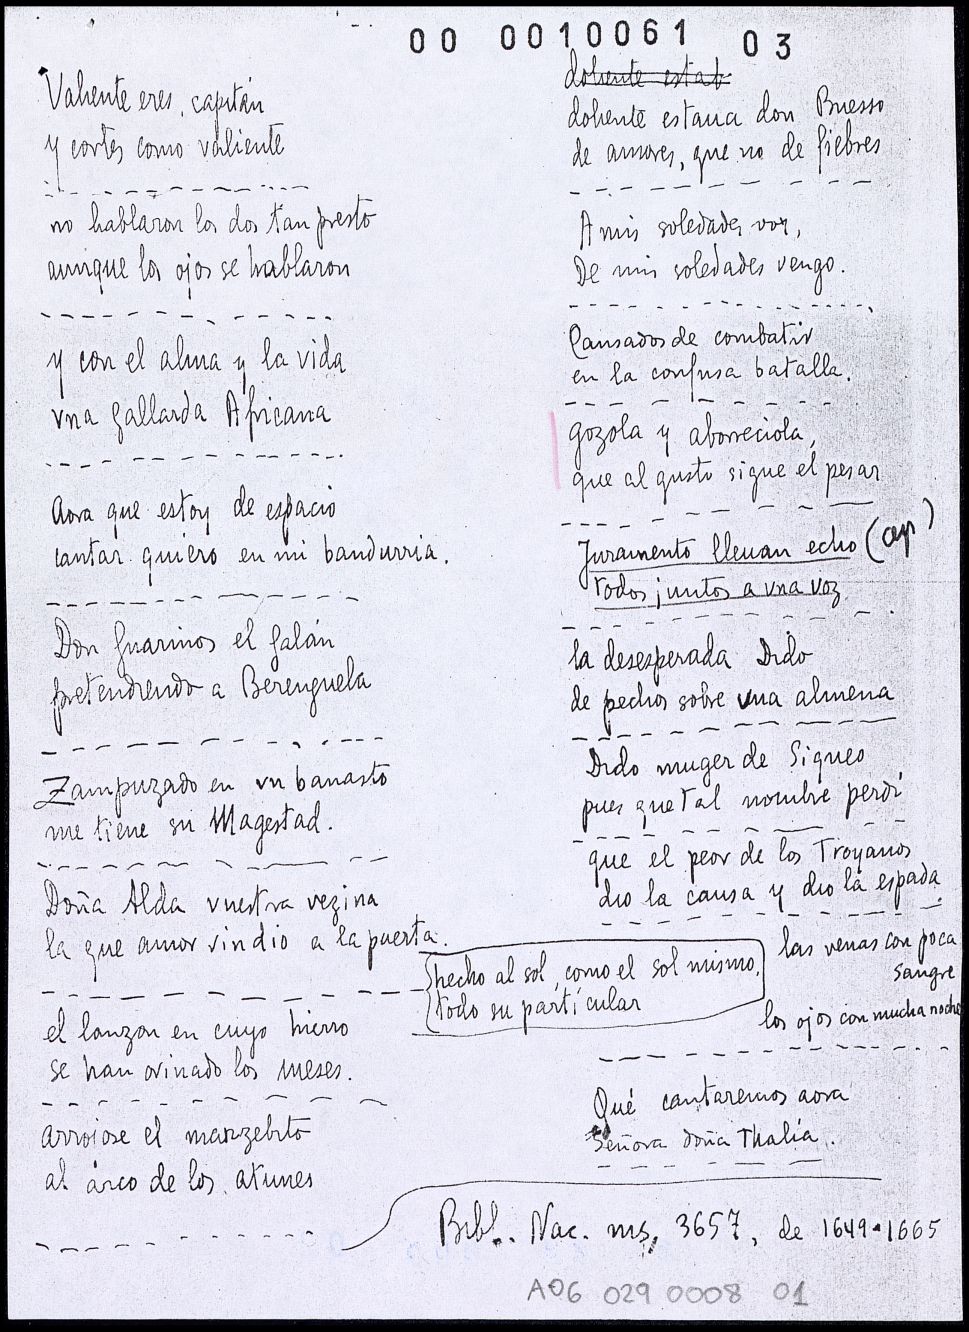 00 0010061 03
Valiente eres, capitán
y cortes como valiente
no hablaron los dos tan presto
aunque los ojos se hablaron
y con el alma y la vida
vna gallarda Africana
aora que estoy de espacio
cantar quiero en mi bandurria.
Don Guarinos el galán
pretendiendo a Berenguela
Zampuzado en vn banasto
me tiene su Magestad.
Doña Alda vuestra vezina
la que amor rindio a la puerta.
el lanzon en cuyo hierro
se han orinado los meses.
arrojose el manzebito
al árco de los atunes
doliente estab
doliente estaua don Buesso
de amores, que no de fiebres
A mis soledades voy,
De mis soledades vengo.
Cansados de combatir
en la confusa batalla.
gozola y aborreciola,
que al gusto sigue el pesar
Juramento lleuan echo
todos juntos a vna voz
la desesperada Dido
de pechos sobre vna almena
Dido muger de Siqueo
pues que tal nombre perdí
que el peor de los Troyanos
dio la causa y dio la espada.
las venas con poca
sangre
los ojos con mucha noche
hecho al sol, como el sol mismo,
todo su partícular
Qué cantaremos aora
Señora doña Thalía.
Bibl. Nac. ms, 3657, de 1649-1665
A06 029 0008 01